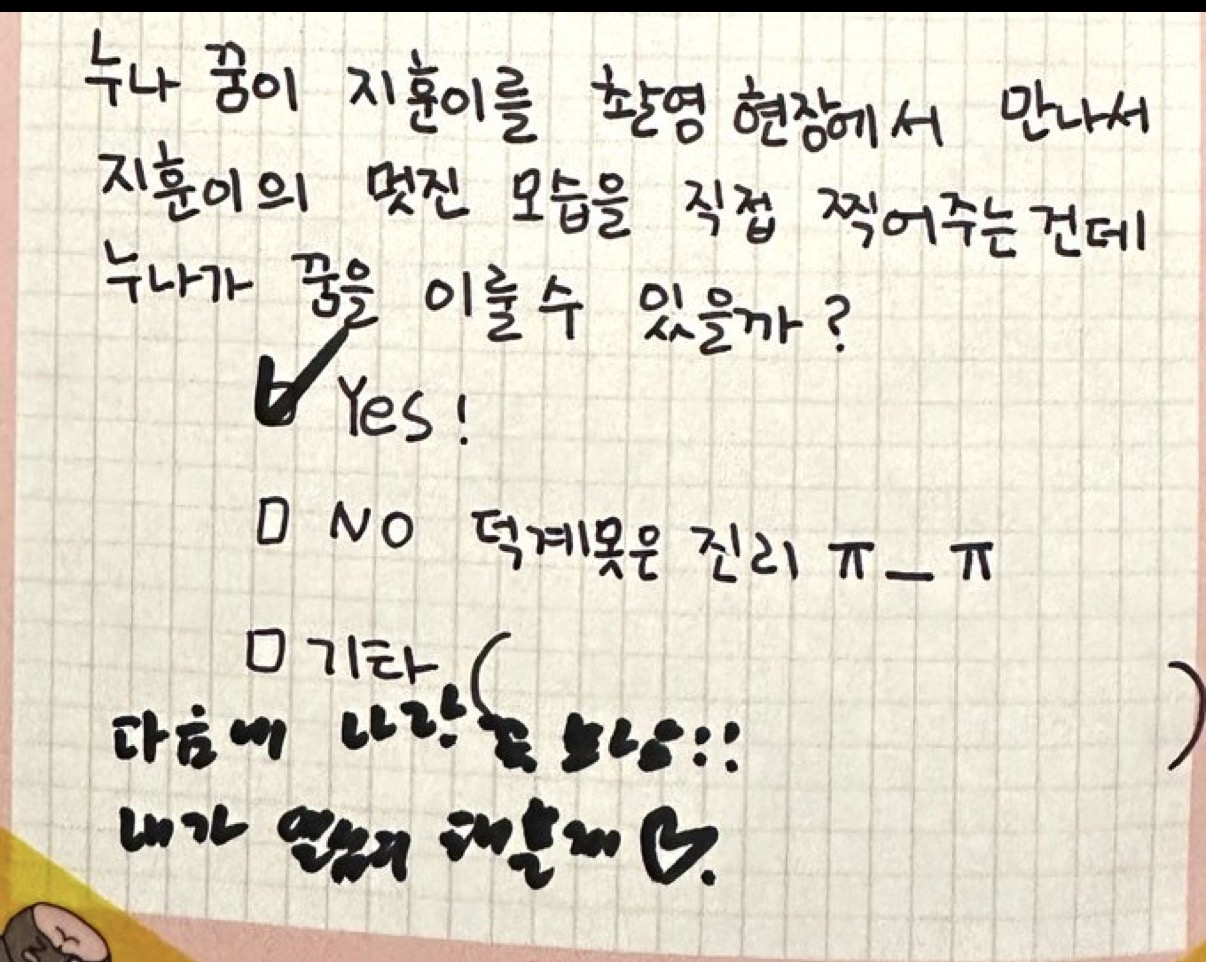 누나 꿈이 지훈이를 촬영 현장에서 만나서
지훈이의 멋진 모습을 직접 찍어주는 건데
누나가 꿈을 이룰 수 있을까?
Yes!
NO 덕계못은 진리 ㅠ_ㅠ
기타 ( )
다음에 나랑 꼭 보낭::
내가 열심히 해볼게 ♡.